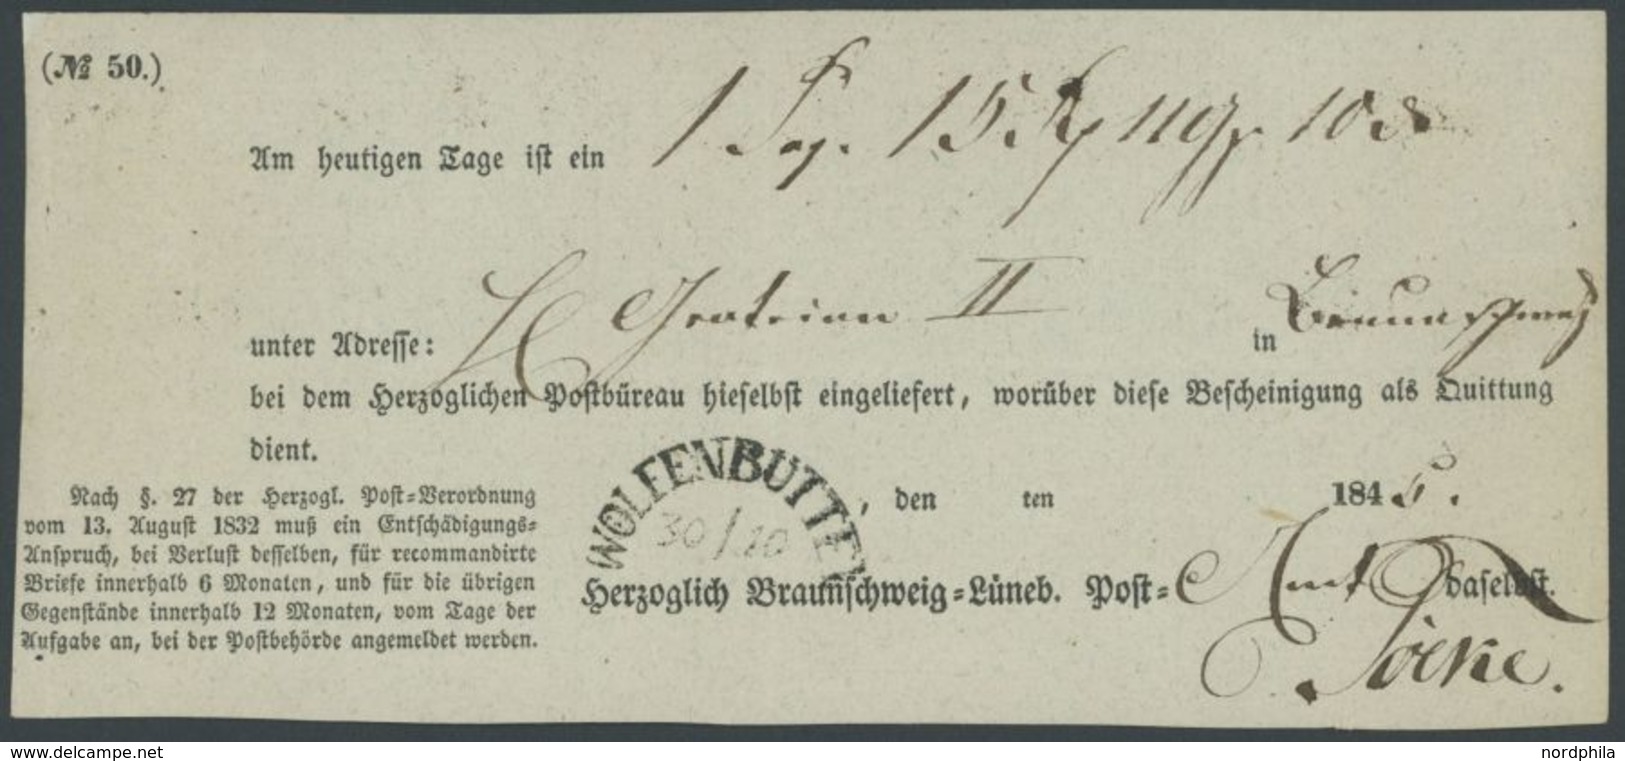 (№ 50.)
Am heutigen Tage ist ein 1 15
unter Adresse: II in Braunschweig
bei dem Herzoglichen Postbüreau hieselbst eingeliefert, worüber diese Bescheinigung als Quittung
dient.
WOLFENBUTTEL
30/10
, den ten 1845.
Nach §. 27 der Herzogl. Post-Verordnung
vom 13. August 1832 muß ein Entschädigungs-
Anspruch, bei Verlust desselben, für recommandirte
Briefe innerhalb 6 Monaten, und für die übrigen
Gegenstände innerhalb 12 Monaten, vom Tage der
Aufgabe an, bei der Postbehörde angemeldet werden.
Herzoglich Braunschweig-Lüneb. Post-Amt daselbst.
www.delcampe.net
nordphila